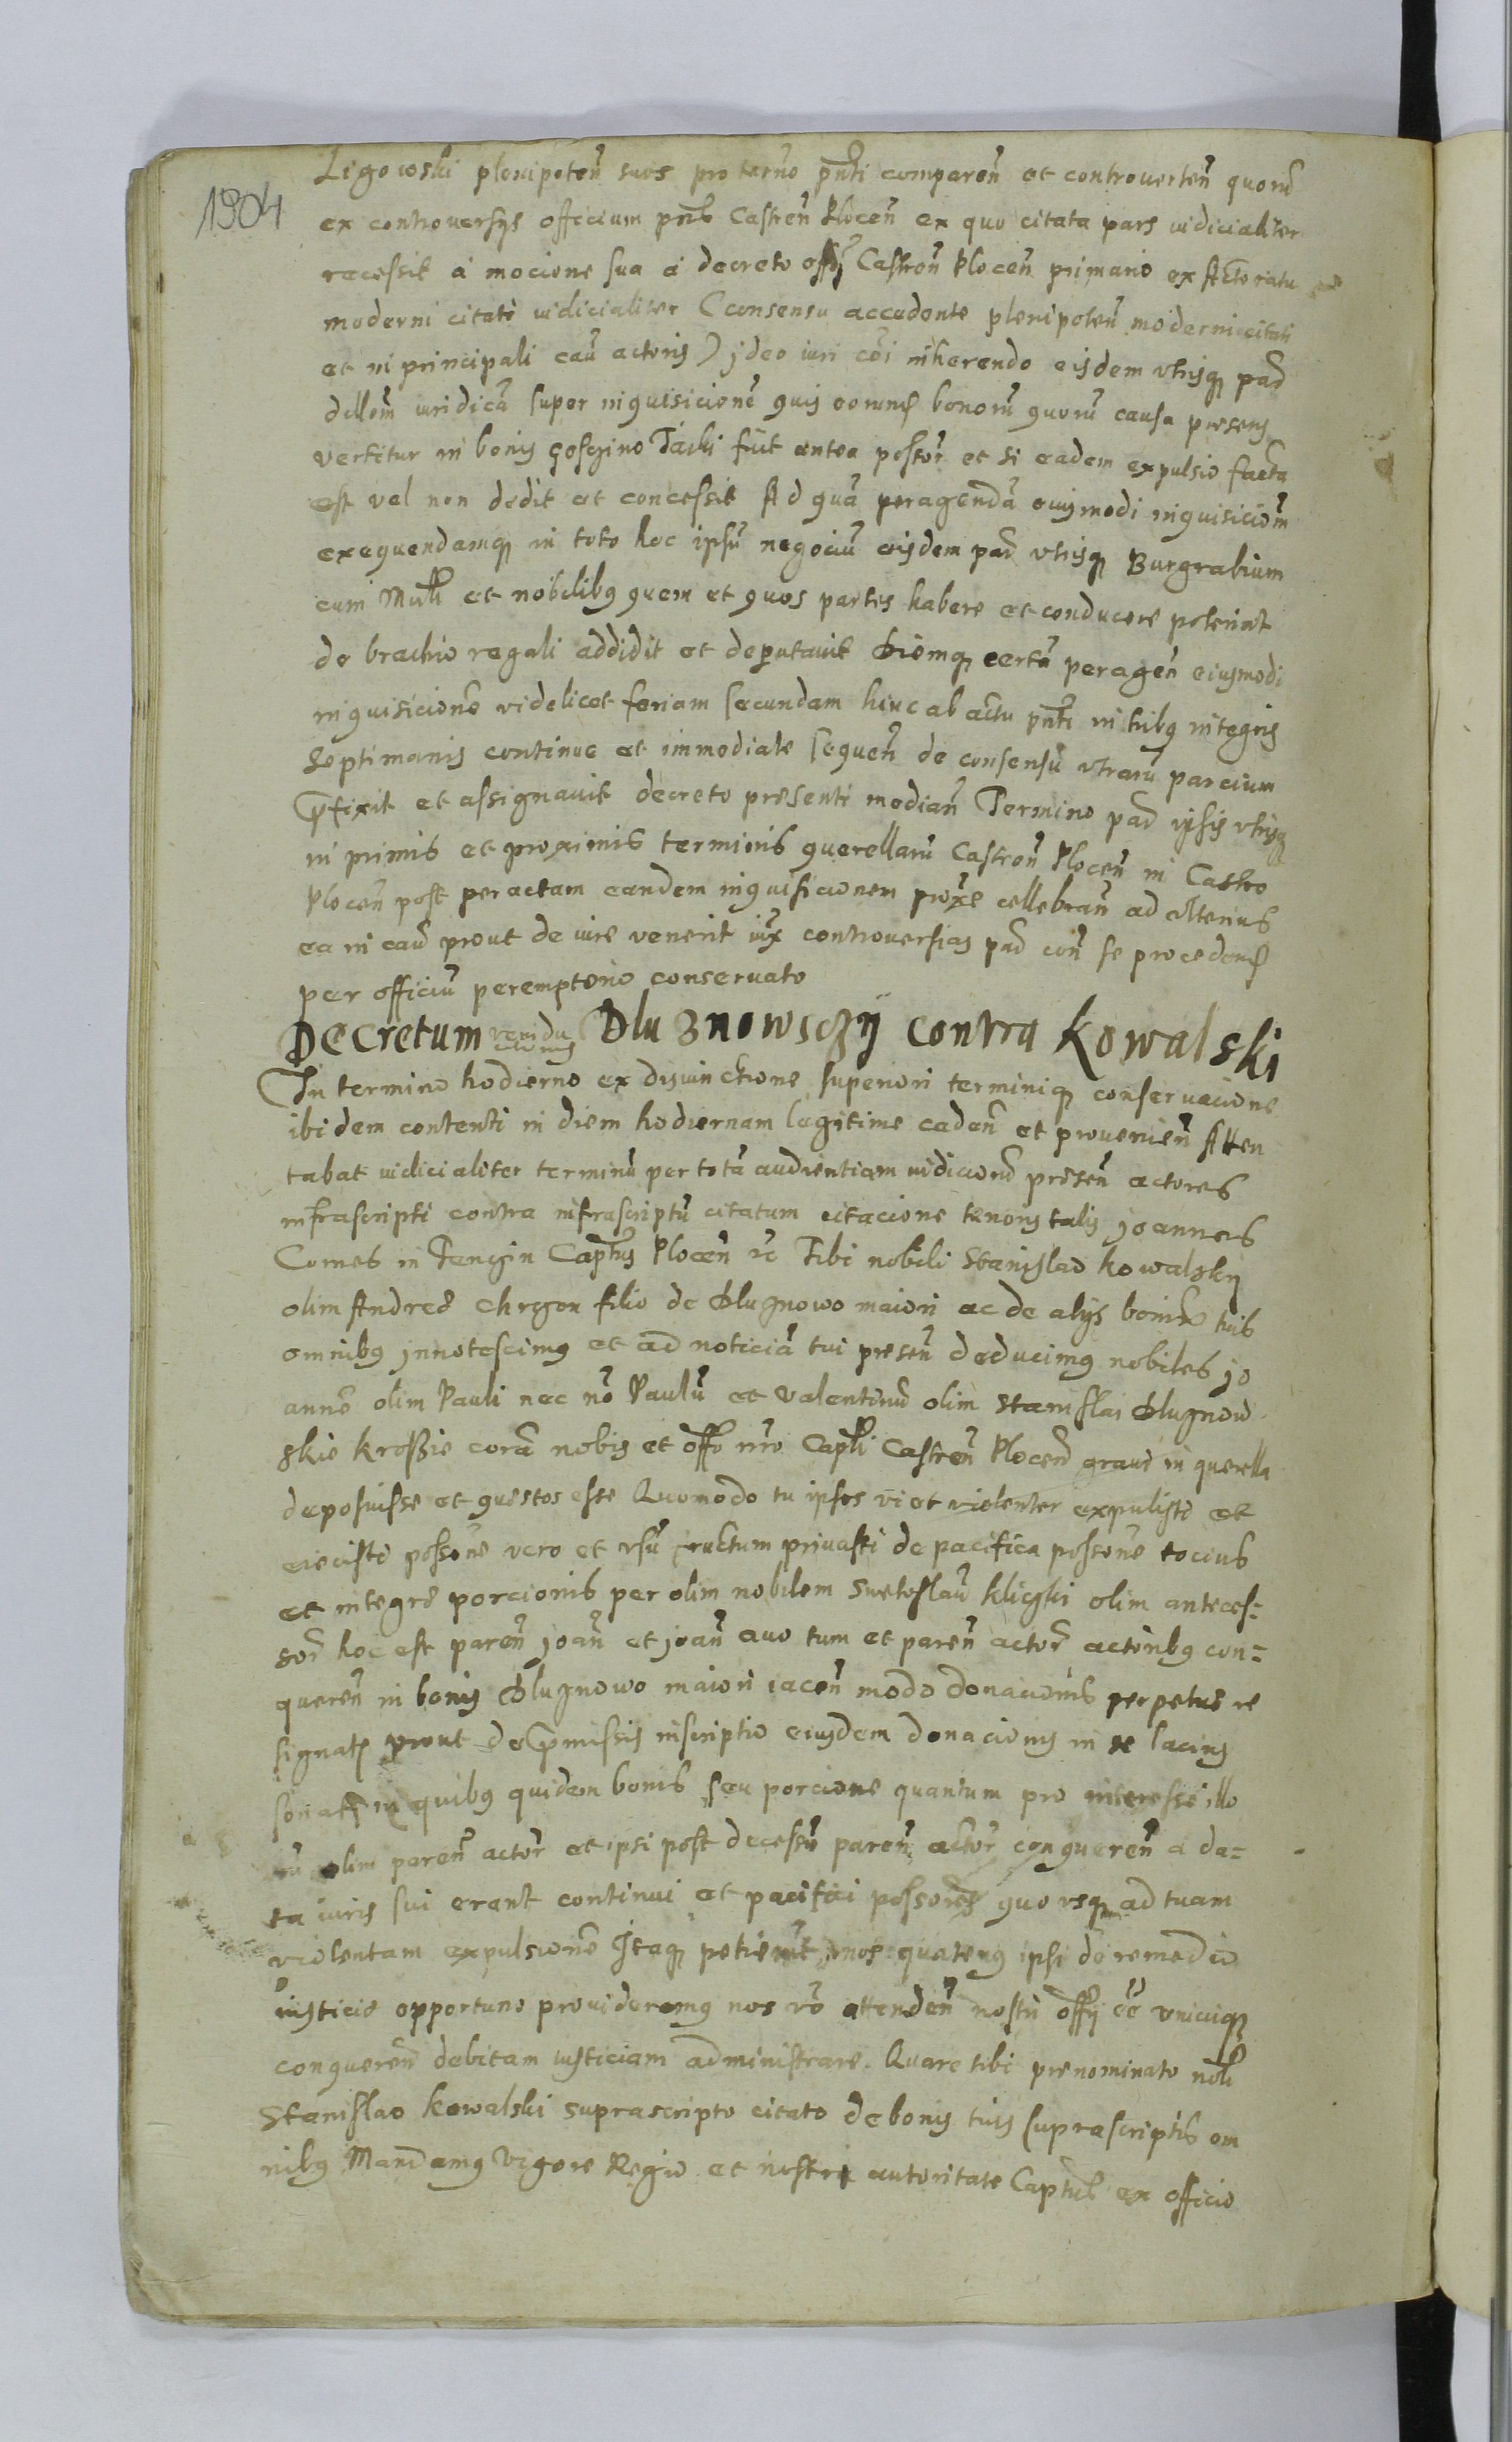 1904
Ligowski plenipoten suos pro termo pnti comparen et controuerten quoru
ex controuersys officium pns Castren Plocen ex quo citata pars iudicialiter
recessit a mocione sua a decreto offy Castren Plocen primario ex Actoratu
moderni citati iudicialiter (consensu accedente plenipoten moderni citati
et in principali cau actoris) jdeo iuri coi inherendo eisdem vtrisq par
iuridica super inquisicione quis bonoru quoru causa presens
vertitur in bonis Gosczino Tacki fuit antea possor et si eadem expulsio facta
est vel non dedit et concessit Ad qua peragenda eiusmodi inquisiciom
exequendamq in toto hoc ipsu negociu eisdem par vtrisq Burgrabium
cum Mrli et nobilibq quem et quos partes habere et conducere poterint
de brachio regali addidit et deputauit Diemq certa peragen eiusmodi
inquisicione videlicet feriam secundam hinc ab actu pnti in tribq integris
septimanis continue et immediate sequen de consensu vtraru parcium
pfixit et assignauit decreto presenti median Termino par ipsis vtrisq
in primis et proximis terminis querellaru Castren Plocen in Castro
Plocen post peractam eandem inquisicionem proxe cellebran ad vlterius
ea in cau prout de iure venerit iux controuersias par con se procedend
per officiu peremptorie conseruato
Decretum Dluznowsczy contra Kowalski
In termino hodierno ex disiunctione superiori terminiq conseruacione
ibidem contenti in diem hodiernam legitime caden et prouenien Atten
tabat iudicialiter terminu per tota audientiam iudicioru presen actores
infrascripti contra infrascriptu citatum citacione tenoris talis Joannes
Comes in Tenczin Captus Plocen rc Tibi nobili Stanislao Kowalsky
olim Andree Chrczon filio de Dlugnowo maiori ac de alys bonis tuis
omnibq jnnotescimq et ad noticia tui presen deducimq nobiles Jo
anne olim Pauli nec no Paulu et Valentinu olim Stanislai Dlugnow
skie Krossie cora nobis et offo nro Captli Castren Plocen graui in querella
deposuisse et questos esse Quomodo tu ipsos vi et violenter expulisti et
eiecisti possone vero et vsu fructum priuasti de pacifica possone tocius
et integre porcionis per olim nobilem Swetoslau Kliczki olim anteces=
sor hoc est paren joan et joan auo tum et paren actor actoribq con=
queren in bonis Dlugnowo maiori iacen modo donacionis perpetue re
signate prout de pmissis inscriptio eiusdem donacionis in se lacius
sonat in quibq quidem bonis seu porcione quantum pro interesse illo
ru olim paren actor et ipsi post decessu paren actor conqueren a da=
ta iuris sui erant continui et pacifici possores quo vsq ad tuam
violentam expulsione Itaq petierut nos quatenq ipsi de remedio
iusticie opportuno prouideremq nos vo attenden nostri offy ee vnicuiq
conqueren debitam iusticiam administrare. Quare tibi prenominato nobi
Stanislao Kowalski suprascripto citato de bonis tuis suprascriptis om
nibq Mandamq Vigore Regio et nostra autoritate Captus ex officio